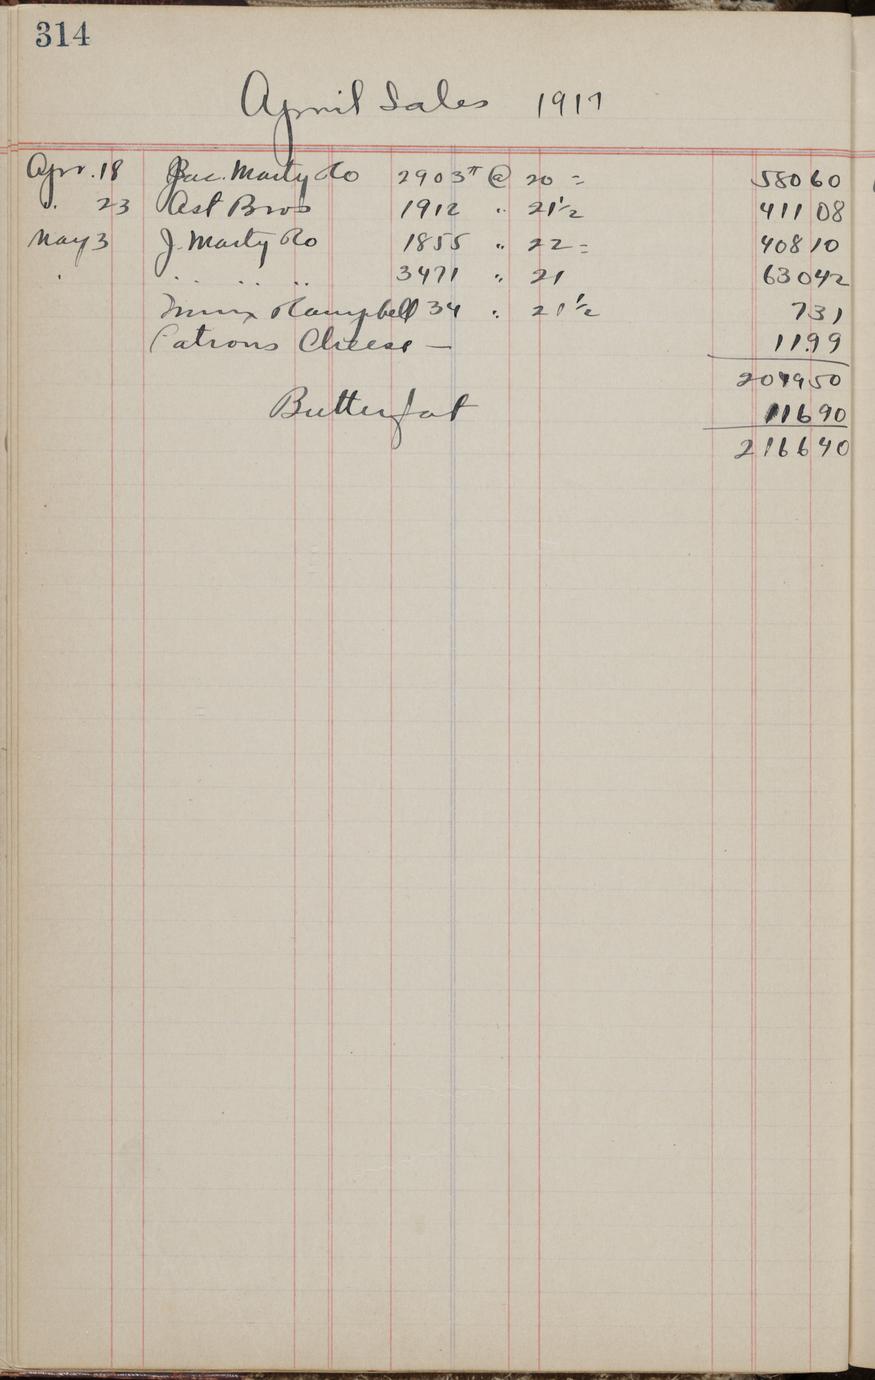 314
April Sales 1917
Apr. 18 Jac. Marty Co 2903 @ 20 = 580 60
" 23 Ast Bros 1912 " 21 1/2 411 08
May 3 J. Marty Co 1855 " 22 = 408 10
" " " " " 3471 " 21 630 42
Campbell 34 " 21 1/2 7 31
Patrons Cheese — 11.99
2049 50
Butterfat 116 90
2166 40